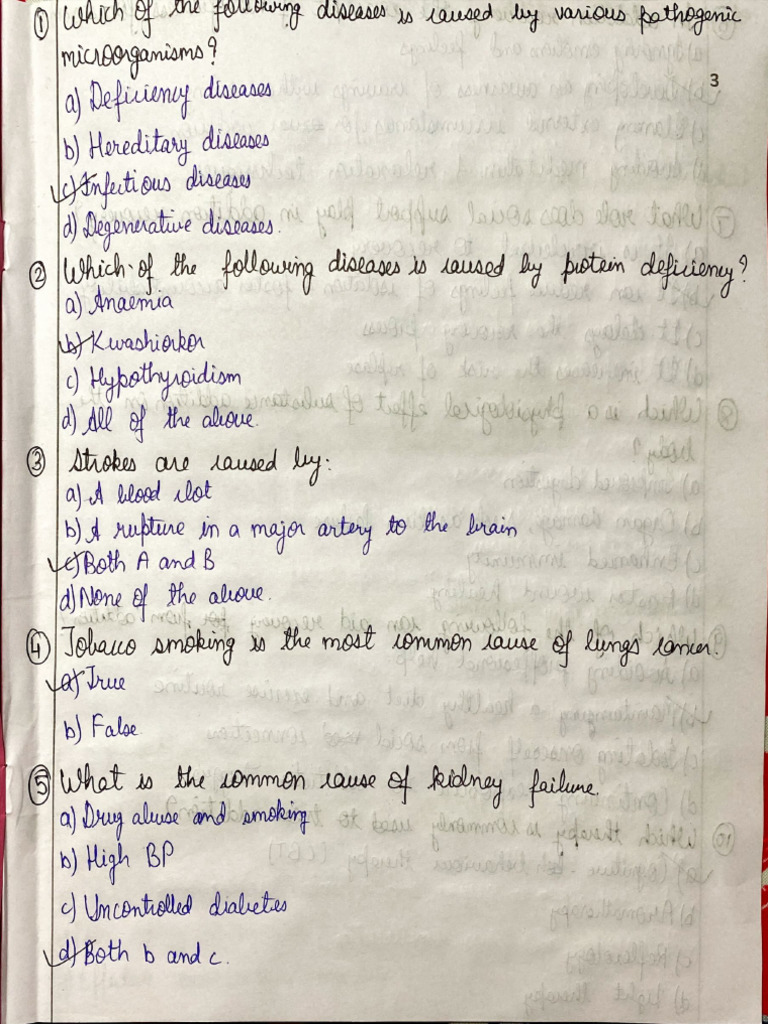 ① Which of the following diseases is caused by various pathogenic
microorganisms?
3
a) Deficiency diseases
b) Hereditary diseases
c) Infectious diseases
d) Degenerative diseases.
② Which of the following diseases is caused by protein deficiency?
a) Anaemia
b) Kwashiorkor
c) Hypothyroidism
d) All of the above.
③ Strokes are caused by:
a) A blood clot
b) A rupture in a major artery to the brain
c) Both A and B
d) None of the above.
④ Tobacco smoking is the most common cause of lungs cancer.
a) True
b) False
⑤ What is the common cause of kidney failure.
a) Drug abuse and smoking
b) High BP
c) Uncontrolled diabetes
d) Both b and c.